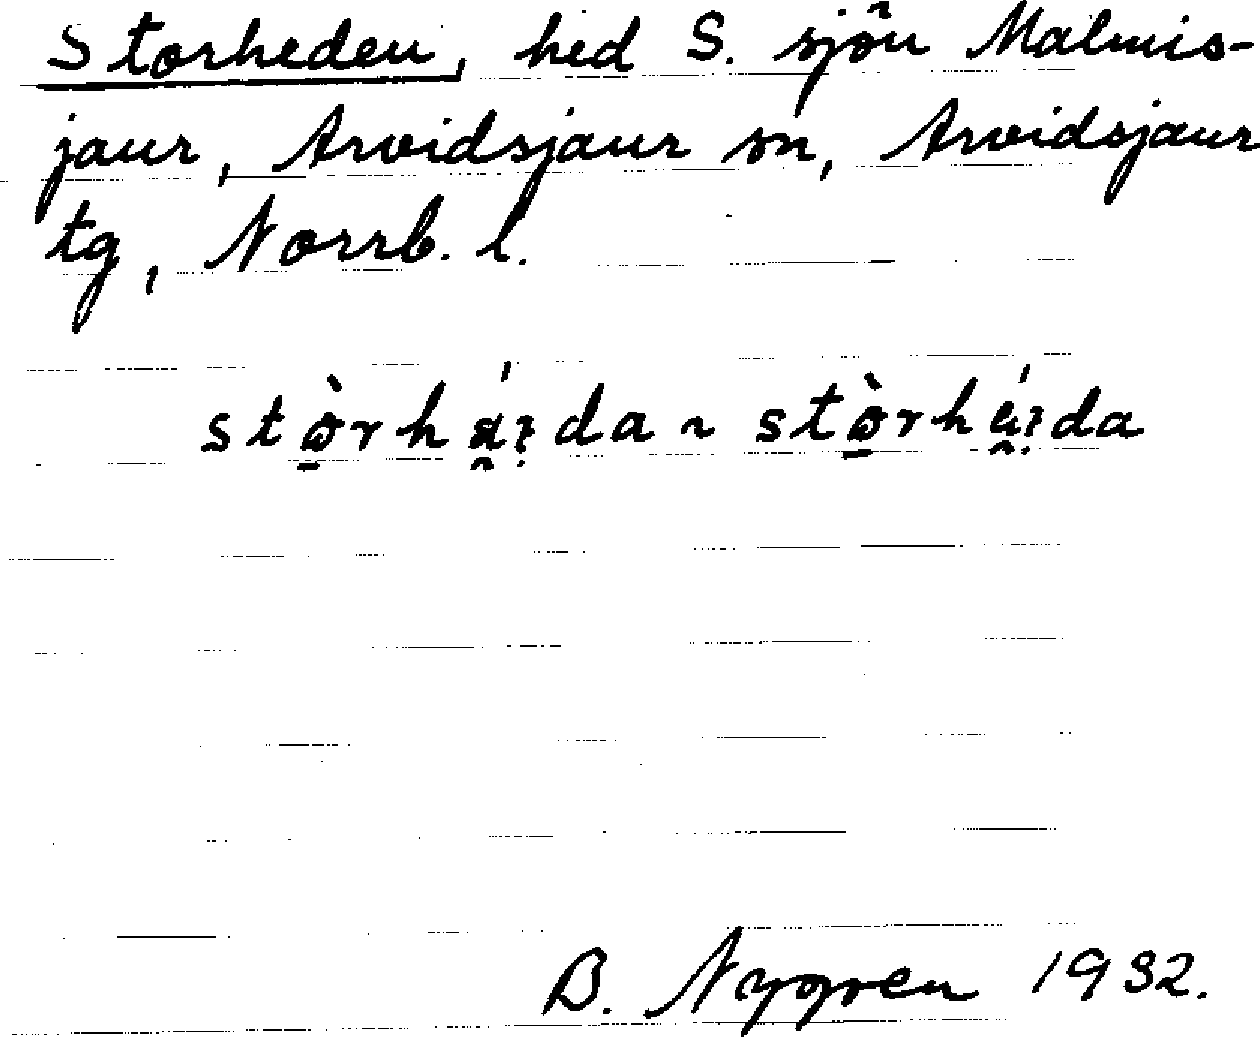 Storheden, hed S. sjön Malmis-
jaur, Arvidsjaur sn, Arvidsjaur
tg, Norrb. l.
B. Nygren 1932.